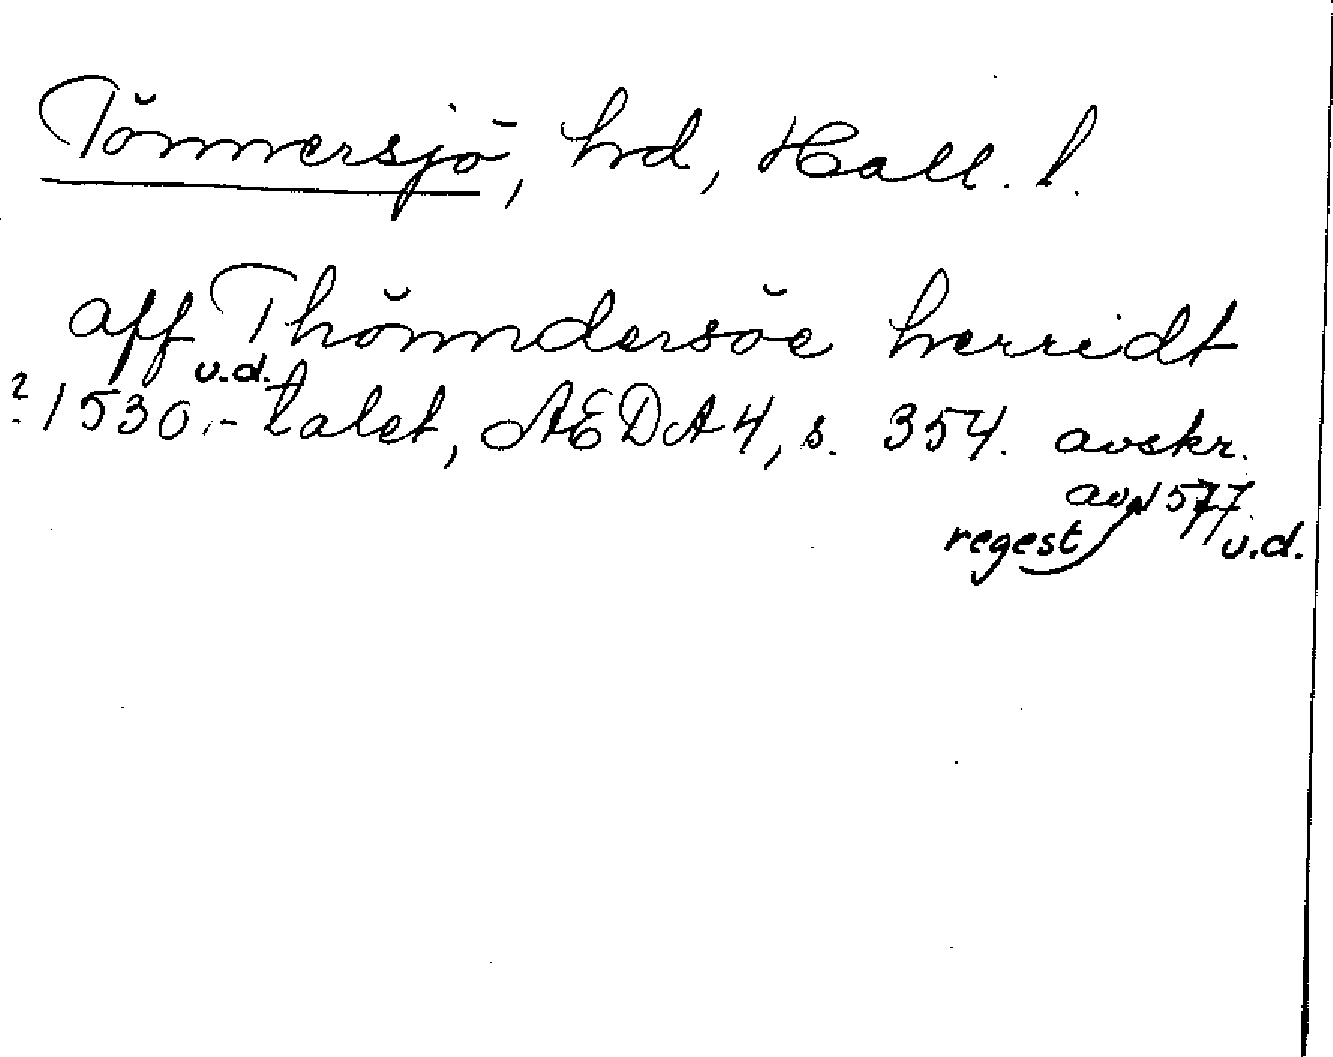 Tönnersjö, hd, Hall. l.
aff Thönndersöe herridt
u.d.
? 1530-talet, ÆDA 4, s. 354. avskr.
av 1577
regest u.d.